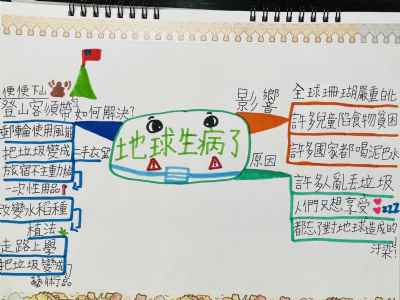 地球生病了
影響
全球珊瑚嚴重白化
許多兒童陷食物貧困
許多國家都喝泥水
原因
許多人亂丟垃圾
人們只想享受
都忘了對地球造成的
汙染!
如何解決?
便便下山
登山客須帶
郵輪使用風能
把垃圾變成二手
旅宿不主動
一次性用品
改變水稻種
植法
走路上學
把垃圾變成
藝術品